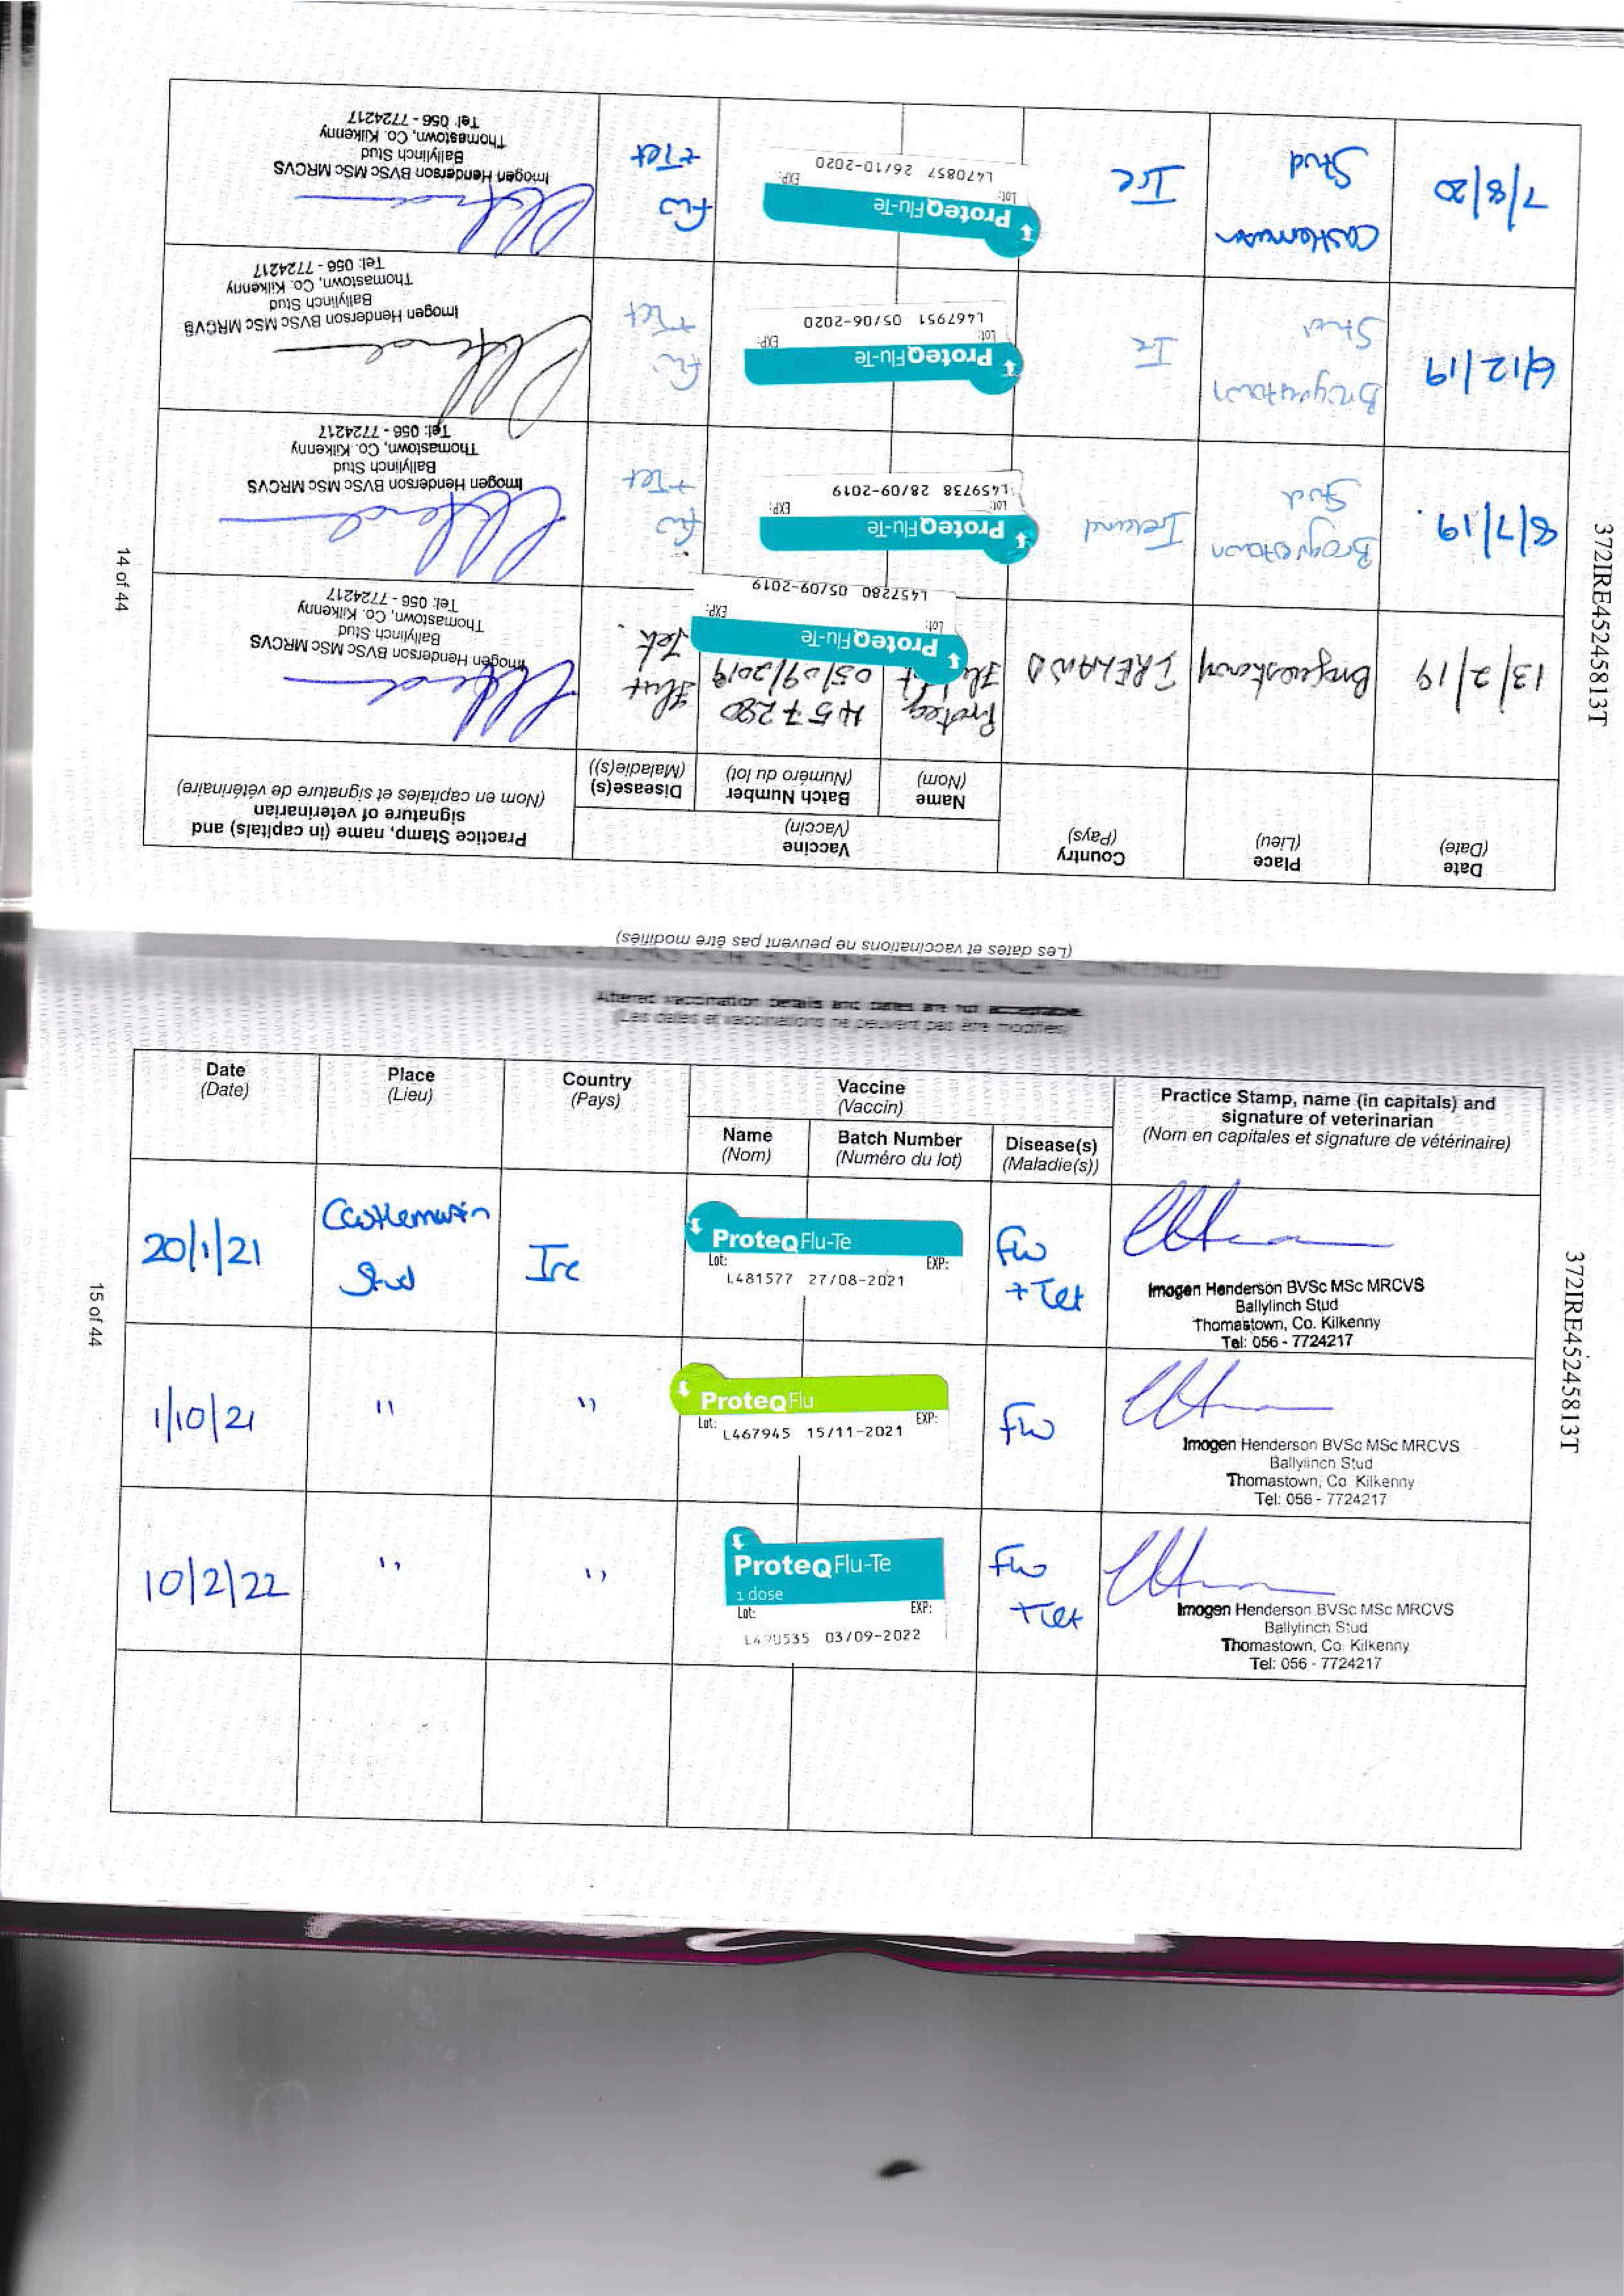 (Les dates et vaccinations ne peuvent pas être modifiées)
Date
(Date)
Place
(Lieu)
Country
(Pays)
Vaccine
(Vaccin)
Name
(Nom)
Batch Number
(Numéro du lot)
Disease(s)
(Maladie(s))
Practice Stamp, name (in capitals) and
signature of veterinarian
(Nom en capitales et signature de vétérinaire)
13/2/19
IRELAND
Proteq
457280
05/09/2019
ProteqFlu-Te
Lot: EXP:
L457280 05/09-2019
Imogen Henderson BVSc MSc MRCVS
Ballylinch Stud
Thomastown, Co. Kilkenny
Tel: 056 - 7724217
8/7/19.
Stud
Ireland
ProteqFlu-Te
Lot: EXP:
L459738 28/09-2019
Flu
+ Tet
Imogen Henderson BVSc MSc MRCVS
Ballylinch Stud
Thomastown, Co. Kilkenny
Tel: 056 - 7724217
6/12/19
Stud
Ire
ProteqFlu-Te
Lot: EXP:
L467951 05/06-2020
Flu
+ Tet
Imogen Henderson BVSc MSc MRCVS
Ballylinch Stud
Thomastown, Co. Kilkenny
Tel: 056 - 7724217
7/8/20
Castlemartin
Stud
Ire
ProteqFlu-Te
Lot: EXP:
L470857 26/10-2020
Flu
+ Tet
Imogen Henderson BVSc MSc MRCVS
Ballylinch Stud
Thomastown, Co. Kilkenny
Tel: 056 - 7724217
14 of 44
372IRE45245813T
Altered vaccination details and dates are not acceptable.
(Les dates et vaccinations ne peuvent pas être modifiées)
Date
(Date)
Place
(Lieu)
Country
(Pays)
Vaccine
(Vaccin)
Name
(Nom)
Batch Number
(Numéro du lot)
Disease(s)
(Maladie(s))
Practice Stamp, name (in capitals) and
signature of veterinarian
(Nom en capitales et signature de vétérinaire)
20/1/21
Castlemartin
Stud
Ire
ProteqFlu-Te
Lot: EXP:
L481577 27/08-2021
Flu
+ Tet
Imogen Henderson BVSc MSc MRCVS
Ballylinch Stud
Thomastown, Co. Kilkenny
Tel: 056 - 7724217
1/10/21
"
"
ProteqFlu
Lot: EXP:
L467945 15/11-2021
Flu
Imogen Henderson BVSc MSc MRCVS
Ballylinch Stud
Thomastown, Co. Kilkenny
Tel: 056 - 7724217
10/2/22
"
"
ProteqFlu-Te
1 dose
Lot: EXP:
03/09-2022
Flu
+ Tet
Imogen Henderson BVSc MSc MRCVS
Ballylinch Stud
Thomastown, Co. Kilkenny
Tel: 056 - 7724217
15 of 44
372IRE45245813T